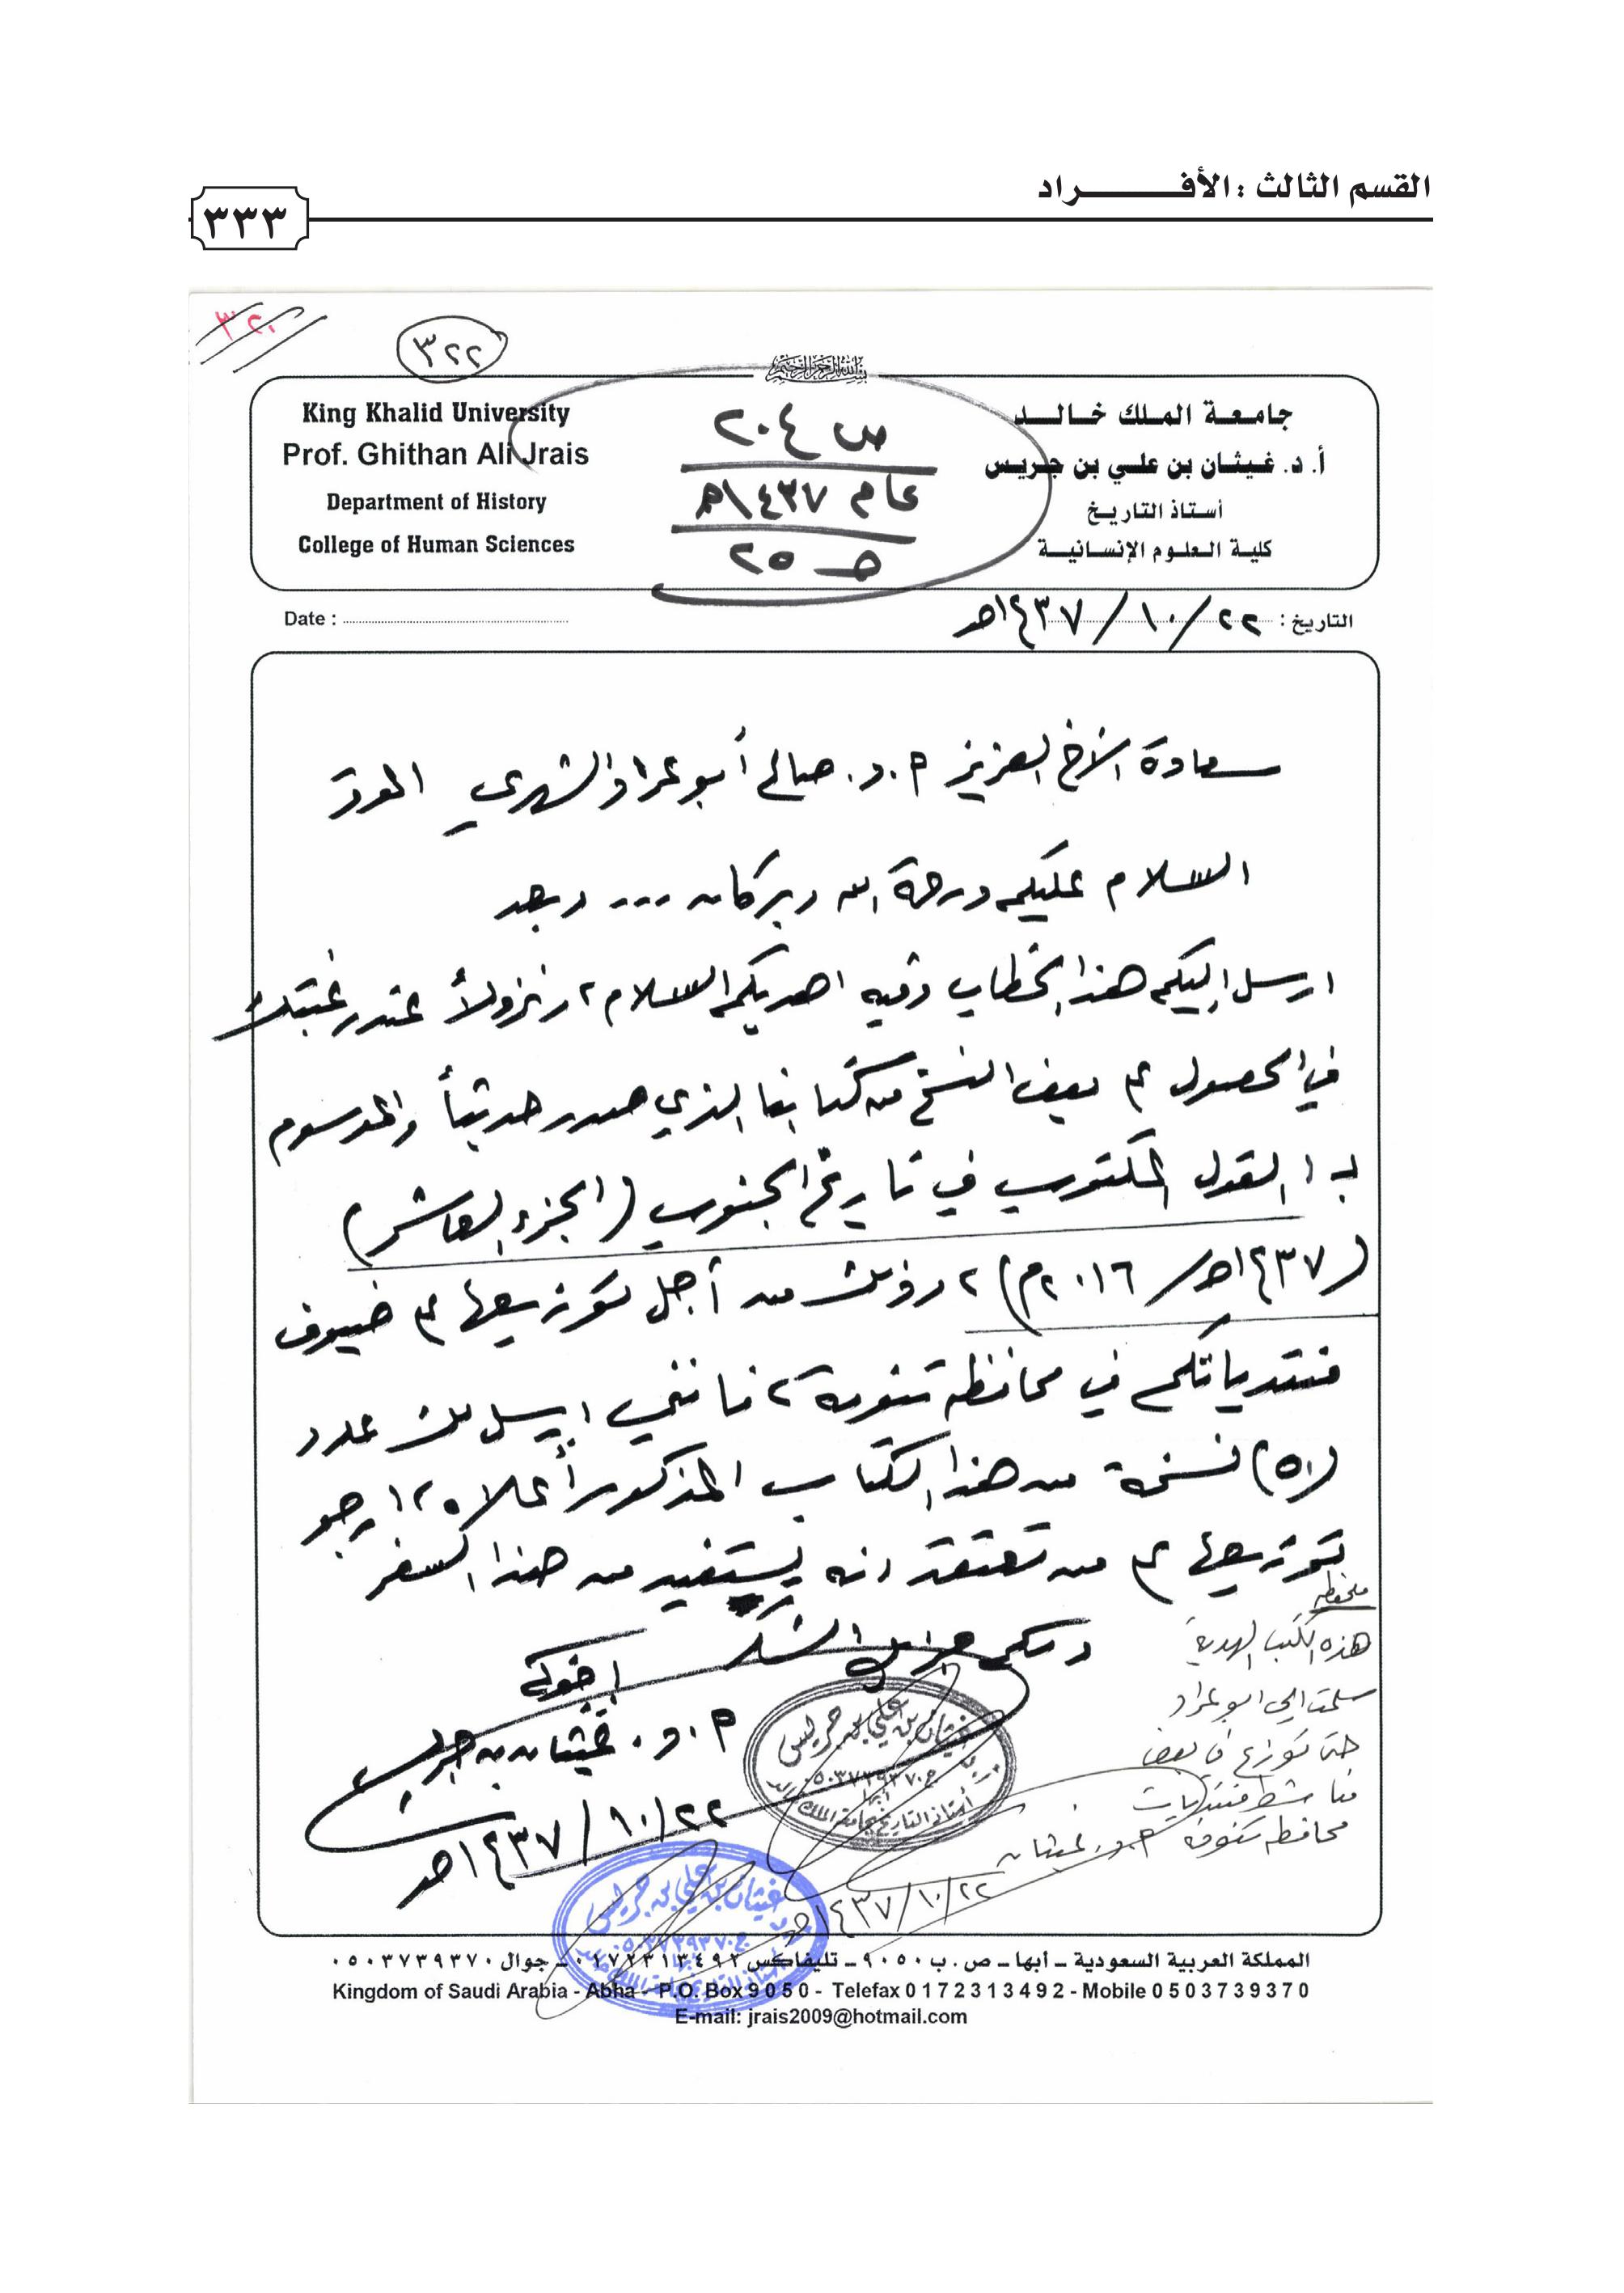 القسم الثالث : الأفـــراد
٣٣٣
٣٢٠
٣٢٢
بسم الله الرحمن الرحيم
King Khalid University
Prof. Ghithan Ali Jrais
Department of History
College of Human Sciences
ص ٢٠٤
عام ١٤٣٧هـ
حـ ٢٥
جامعة الملك خالد
أ. د. غيثان بن علي بن جريس
أستاذ التاريخ
كلية العلوم الإنسانية
Date :
التاريخ : ٢٢/١٠/١٤٣٧هـ
سعادة الأخ العزيز أ.د. صالح أبو عراد الشهري الموقر
السلام عليكم ورحمة الله وبركاته ... وبعد
ارسل اليكم هذا الخطاب وفيه اهديكم السلام، ونزولاً عند رغبتك
في الحصول على بعض النسخ من كتابنا الذي صدر حديثاً والموسوم
بـ : القول المكتوب في تاريخ الجنوب (الجزء العاشر)
(١٤٣٧هـ/٢٠١٦م)، وذلك من أجل توزيعها على ضيوف
منتدياتكم في محافظة تنومة، فانني ارسل لك عدد
(٥٠) نسخة من هذا الكتاب المذكور أعلاه، ارجو
توزيعها على من تعتقد انه يستفيد من هذا السفر
ولكم جزيل الشكر
اخوكم
أ.د. غيثان بن جريس
٢٢/١٠/١٤٣٧هـ
ملحوظة
هذه الكتب الهدية
سلمت الى ابو عراد
حتى توزع في بعض
مناشط منتديات
محافظة تنومة أ.د. غيثان
٢٢/١٠/١٤٣٧هـ
غيثان بن علي بن جريس
ج٠٥٠٣٧٣٩٣٧٠
أبها
أستاذ التاريخ بجامعة الملك خالد
غيثان بن علي بن جريس
ج٠٥٠٣٧٣٩٣٧٠
المملكة العربية السعودية ـ أبها ـ ص. ب ٩٠٥٠ ـ تليفاكس ٠١٧٢٣١٣٤٩٢ ـ جوال ٠٥٠٣٧٣٩٣٧٠
Kingdom of Saudi Arabia - Abha - P.O. Box 9050 - Telefax 0172313492 - Mobile 0503739370
E-mail: jrais2009@hotmail.com